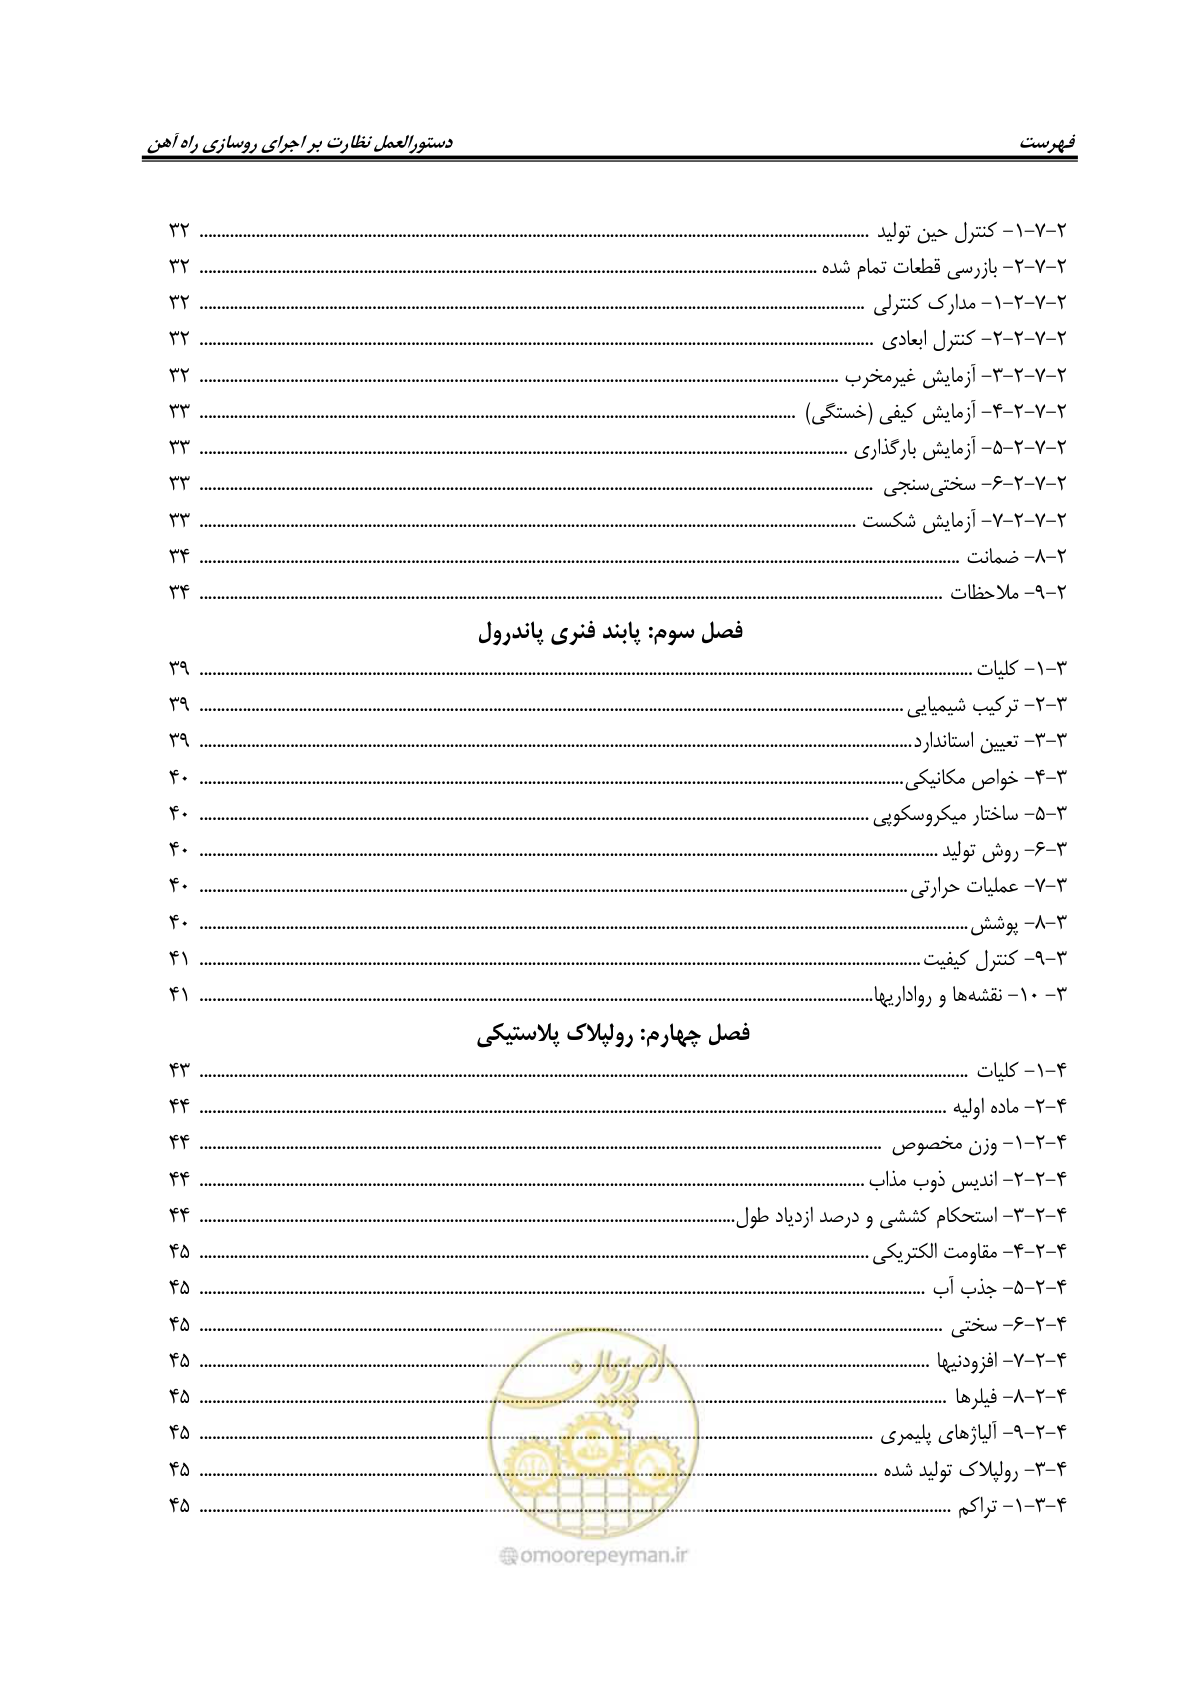 فهرست دستورالعمل نظارت بر اجرای روسازی راه آهن
۲-۷-۱- کنترل حین تولید ........ ۳۲
۲-۷-۲- بازرسی قطعات تمام شده ........ ۳۲
۲-۷-۲-۱- مدارک کنترلی ........ ۳۲
۲-۷-۲-۲- کنترل ابعادی ........ ۳۲
۲-۷-۲-۳- آزمایش غیرمخرب ........ ۳۲
۲-۷-۲-۴- آزمایش کیفی (خستگی) ........ ۳۳
۲-۷-۲-۵- آزمایش بارگذاری ........ ۳۳
۲-۷-۲-۶- سختی‌سنجی ........ ۳۳
۲-۷-۲-۷- آزمایش شکست ........ ۳۳
۲-۸- ضمانت ........ ۳۴
۲-۹- ملاحظات ........ ۳۴
فصل سوم: پابند فنری پاندرول
۳-۱- کلیات ........ ۳۹
۳-۲- ترکیب شیمیایی ........ ۳۹
۳-۳- تعیین استاندارد ........ ۳۹
۳-۴- خواص مکانیکی ........ ۴۰
۳-۵- ساختار میکروسکوپی ........ ۴۰
۳-۶- روش تولید ........ ۴۰
۳-۷- عملیات حرارتی ........ ۴۰
۳-۸- پوشش ........ ۴۰
۳-۹- کنترل کیفیت ........ ۴۱
۳- ۱۰- نقشه‌ها و رواداریها ........ ۴۱
فصل چهارم: رولپلاک پلاستیکی
۴-۱- کلیات ........ ۴۳
۴-۲- ماده اولیه ........ ۴۴
۴-۲-۱- وزن مخصوص ........ ۴۴
۴-۲-۲- اندیس ذوب مذاب ........ ۴۴
۴-۲-۳- استحکام کششی و درصد ازدیاد طول ........ ۴۴
۴-۲-۴- مقاومت الکتریکی ........ ۴۵
۴-۲-۵- جذب آب ........ ۴۵
۴-۲-۶- سختی ........ ۴۵
۴-۲-۷- افزودنیها ........ ۴۵
۴-۲-۸- فیلرها ........ ۴۵
۴-۲-۹- آلیاژهای پلیمری ........ ۴۵
۴-۳- رولپلاک تولید شده ........ ۴۵
۴-۳-۱- تراکم ........ ۴۵
امور پیمان
@omoorepeyman.ir